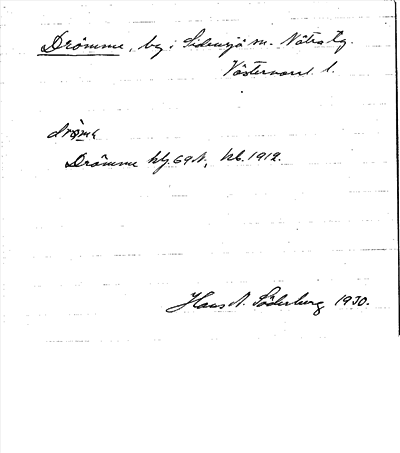 Drömme, by i Sidensjö sn. Nätra tg.
Västernorrl. l.
Drömme kbl. 69 N, kb. 1912.
Hans A. Söderberg 1930.